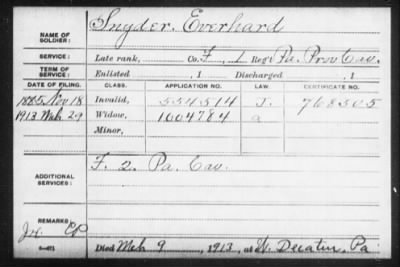 NAME OF SOLDIER: Snyder, Everhard
SERVICE: Late rank, Co. F, 1 Reg't Pa. Prov Cav.
TERM OF SERVICE: Enlisted , 1 Discharged , 1
DATE OF FILING. CLASS. APPLICATION NO. LAW. CERTIFICATE NO.
1885 Nov 18 Invalid, 554514 J. 768505
1913 Mch 29 Widow, 1004784 a
Minor,
ADDITIONAL SERVICES: F. 2. Pa. Cav.
REMARKS:
Died Mch 9, 1913, at W. Decatur, Pa